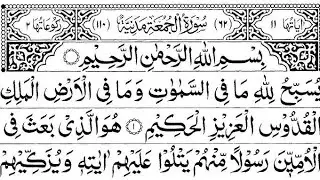 اٰیاتها ١١ (٦٢) سُوْرَةُ الْجُمُعَةِ مَدَنِيَّةٌ (١١٠) رکوعاتها ٢
بِسْمِ اللّٰهِ الرَّحْمٰنِ الرَّحِيْمِ
يُسَبِّحُ لِلّٰهِ مَا فِى السَّمٰوٰتِ وَمَا فِى الْاَرْضِ الْمَلِكِ
الْقُدُّوْسِ الْعَزِيْزِ الْحَكِيْمِ ١ هُوَ الَّذِىْ بَعَثَ فِى
الْاُمِّيّٖنَ رَسُوْلًا مِّنْهُمْ يَتْلُوْا عَلَيْهِمْ اٰيٰتِهٖ وَيُزَكِّيْهِمْ